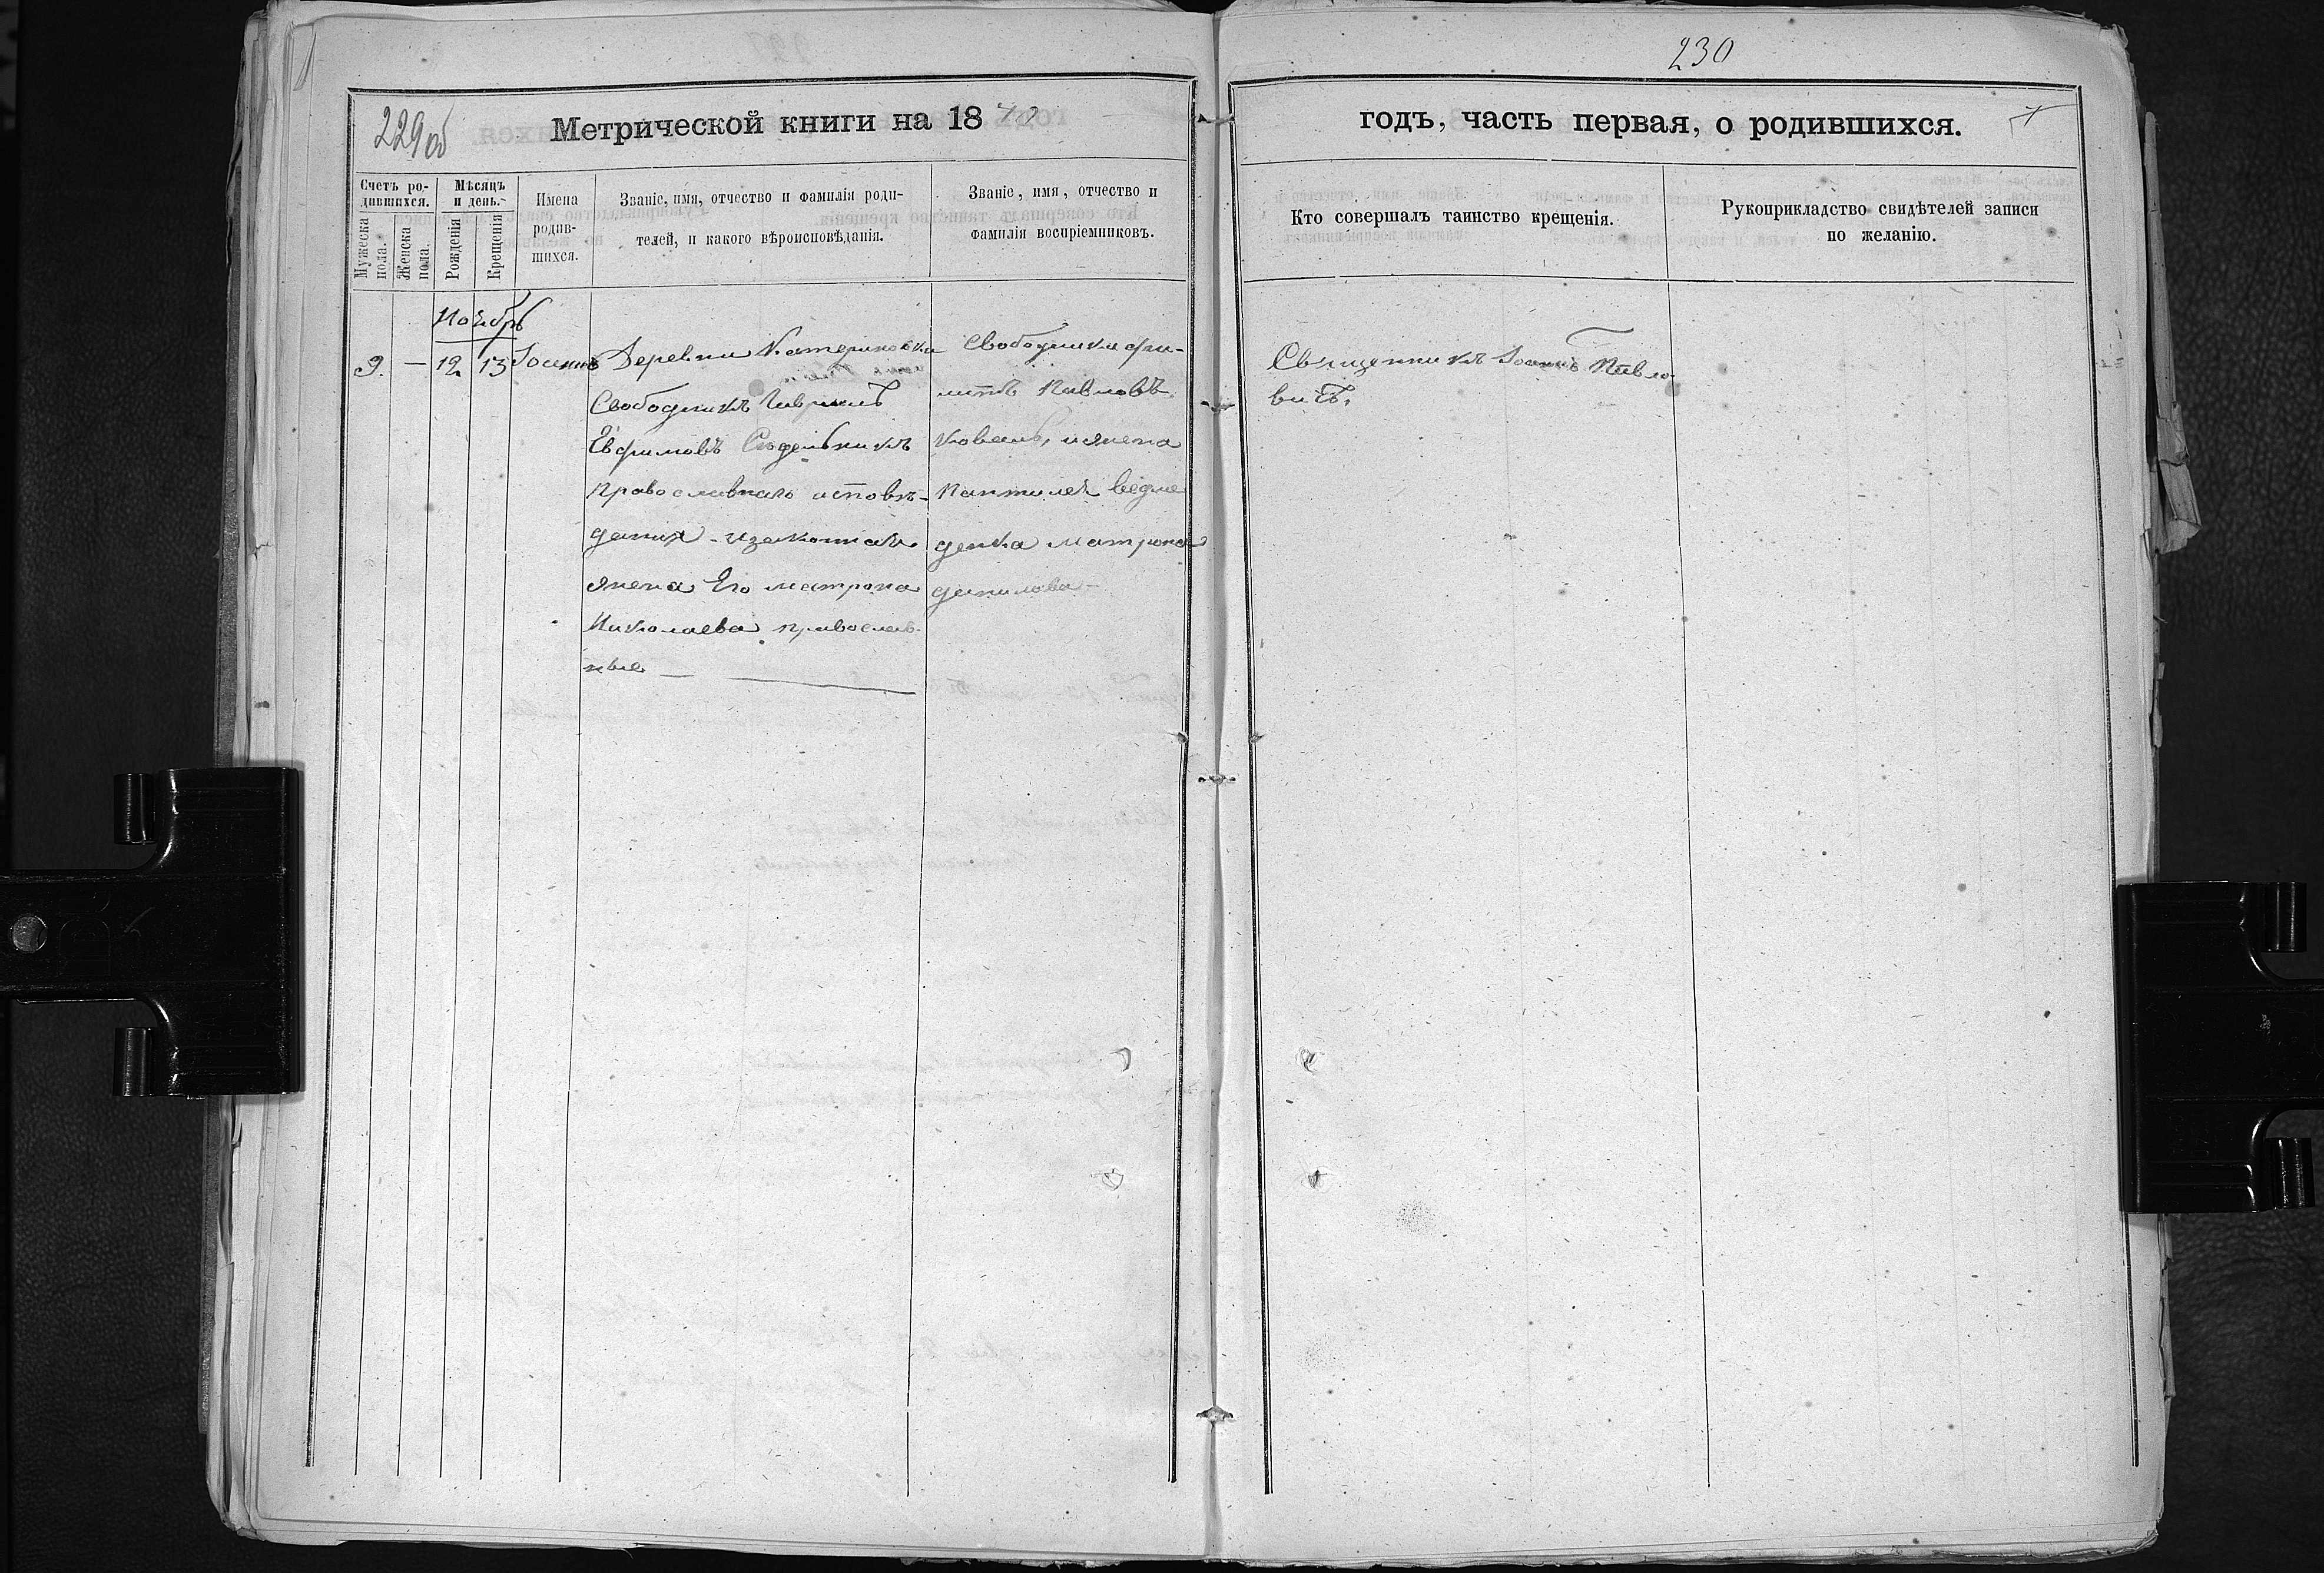 230
229об
Метрической книги на 1870
годъ, часть первая, о родившихся.
Счетъ ро-
дившихся.
Мужеска
пола.
Женска
пола.
Мѣсяцъ
и день.
Рожденія
Крещенія
Имена
родив-
шихся.
Званіе, имя, отчество и фамилія роди-
телей, и какого вѣроисповѣданія.
Званіе, имя, отчество и
фамилія воспріемниковъ.
Кто совершалъ таинство крещенія.
Рукоприкладство свидѣтелей записи
по желанію.
Ноябрь
9. — 12 13
Деревни Катериновки
Свободникъ Гавриилъ
Евфимовъ Сѣдельникъ
православнаго исповѣ-
данія - и законная
жена Его матрона
Николаева православ-
ные
Свободники фи-
липъ Павловъ
Коваль, и жена
Пантилея ведме
денка матрона
данилова -
Священникъ Іоаннъ Павло-
вичъ.